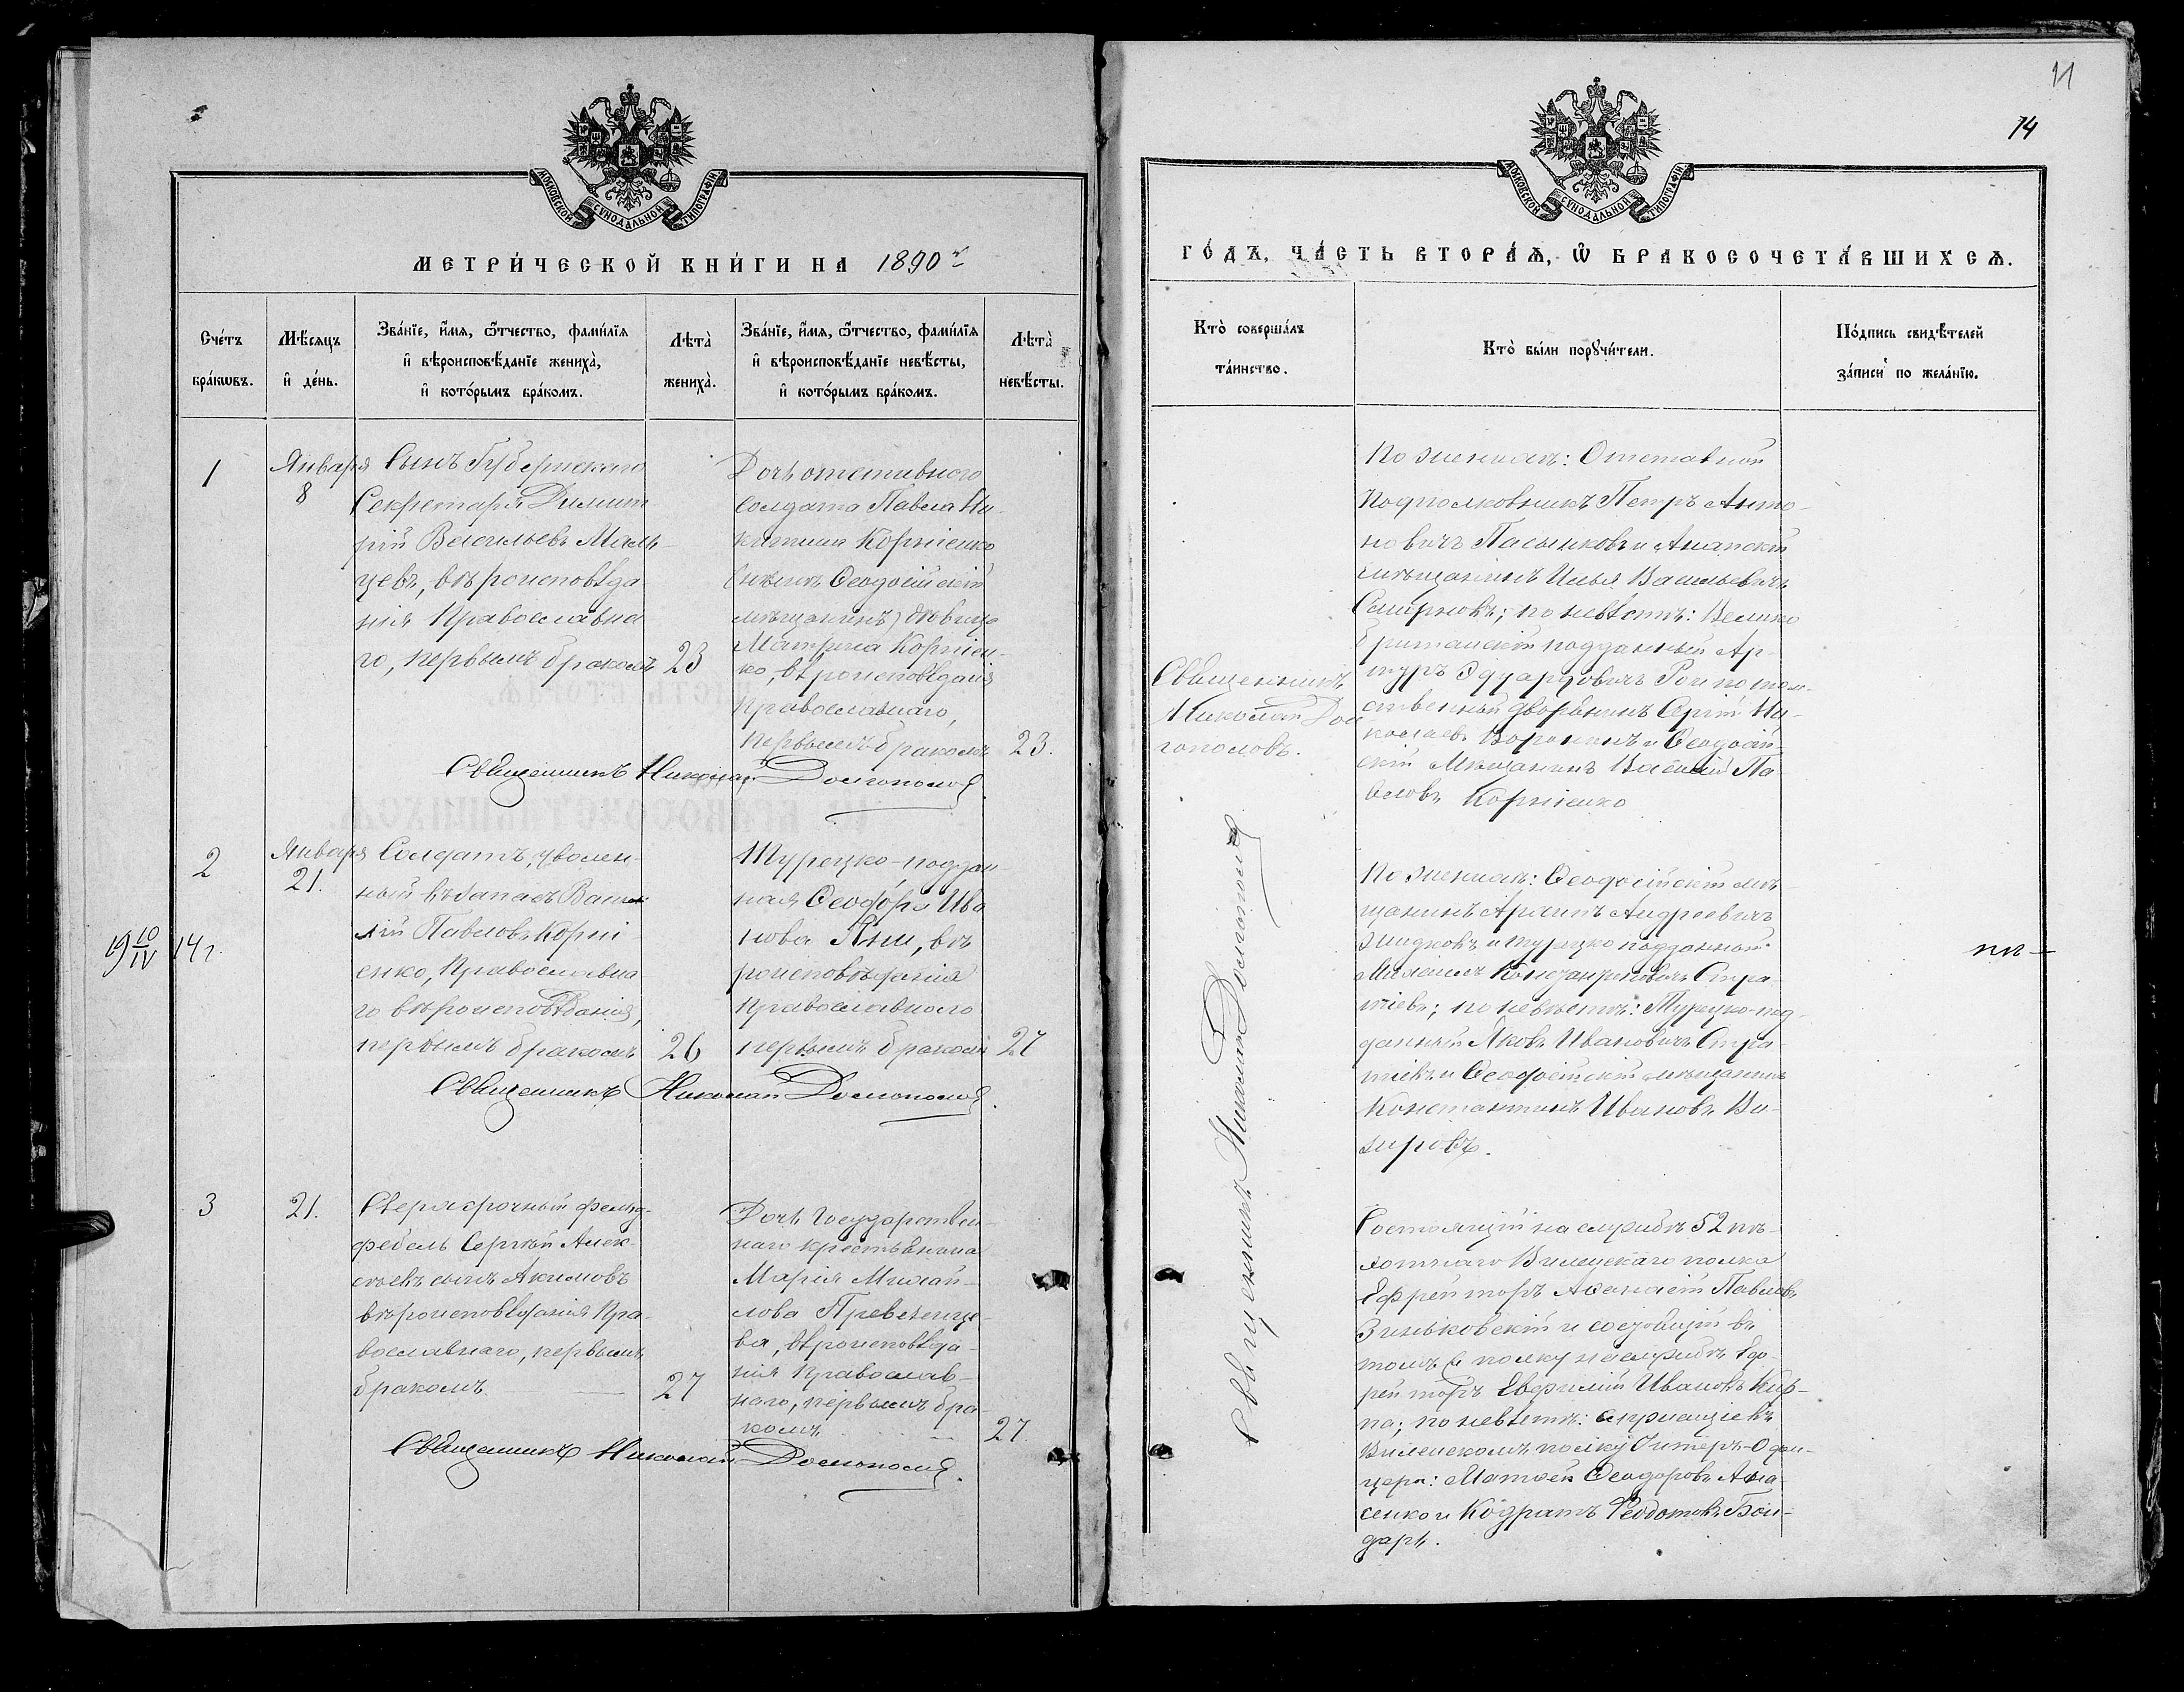 11
14
МОСКОВСКОЙ СѴНОДАЛЬНОЙ ТИПОГРАФІИ
МЕТРИ́ЧЕСКОЙ КНИ́ГИ НА 1890 г.
Сче́тъ бра́кωвъ.
Мѣ́сяцъ и҆ де́нь.
Зва́нїе, и҆́мя, ѻ҆́тчество, фами́лїя
и҆ вѣроисповѣ́данїе жениха̀,
и҆ кото́рымъ бра́комъ.
Лѣта̀ жениха̀.
Зва́нїе, и҆́мя, ѻ҆́тчество, фами́лїя
и҆ вѣроисповѣ́данїе невѣ́сты,
и҆ кото́рымъ бра́комъ.
Лѣта̀ невѣ́сты.
1
Января
8
Сынъ Губернскаго
Секретаря Димит
рій Васильевъ Маль-
цевъ, вѣроисповѣда
нія Православна
го, первымъ бракомъ
23
Дочь отставного
солдата Павла Ни-
китина Корніенко
(нынѣ Ѳеодосійскій
мѣщанинъ) дѣвица
Матрона Корніен-
ко, вѣроисповѣданія
православнаго,
первымъ бракомъ
23.
Священникъ Николай Долгополов.
2
Января
21.
Солдатъ, уволен-
ный въ запасъ Васи
лій Павловъ Корні
енко, Православна
го вѣроисповѣданія,
первымъ бракомъ
26
Турецко-поддан
ная Ѳеодора Ива
нова Яни, вѣ
роисповѣданія
православнаго
первымъ бракомъ
27
19 10/IV 14 г.
Священникъ Николай Долгополов.
3
21.
Сверхсрочный фельд-
фебель Сергѣй Алек-
сѣевъ сынъ Акимовъ
вѣроисповѣданія Пра-
вославнаго, первымъ
бракомъ
27
Дочь Государствен-
наго крестьянина
Марія Михай-
лова
ва, вѣроисповѣда-
нія Православ-
наго, первымъ бра-
комъ
27.
Священникъ Николай Долгополов.
МОСКОВСКОЙ СѴНОДАЛЬНОЙ ТИПОГРАФІИ
ГО́ДЪ, ЧА́СТЬ ВТОРА́Ѧ, Ѽ БРАКОСОЧЕТА́ВШИХСѦ.
Кто̀ соверша́лъ
та́инство.
Кто̀ бы́ли порꙋчи́тели.
По́дпись свидѣ́телей
за́писи по жела́нїю.
Священникъ
Николай Дол
гополовъ.
По женихѣ: Отставной
Подполковникъ Петръ Анто-
новичъ Пасынковъ и Анапскій
мѣщанинъ Илья Васильевичъ
Смирновъ; по невѣстѣ: Велико
Британскій подданный Ар-
туръ Эдуардовичъ потом-
ственный дворянинъ Сергій Ни-
колаевъ Воронинъ и Ѳеодосій-
скій Мѣщанинъ Василій Па
вловъ Корніенко
Священникъ Николай Долгополов
По женихѣ: Ѳеодосійскій мѣ-
щанинъ Архипъ Андреевичъ
Жидковъ и турецко подданный
Михаилъ Стра
тіевъ; по невѣстѣ: Турецко-под-
данный Яковъ Ивановичъ Стра-
тіевъ и Ѳеодосійскій мѣщанинъ
Константинъ Ивановъ Ви-
зировъ.
Состоящій на службѣ 52 пѣ-
хотнаго Виленскаго полка
Ефрейторъ Аѳанасій Павловъ
Зиньковскій и состоящій въ
томъ полку на службѣ Еф-
рейторъ Евфимій Ивановъ Кир-
па; по невѣстѣ: служащіе въ
Виленскомъ полку Унтеръ-Офи-
цера: Матѳей Ѳеодоровъ
сенко и Кодратъ Ѳеодотовъ Бон-
дарь.